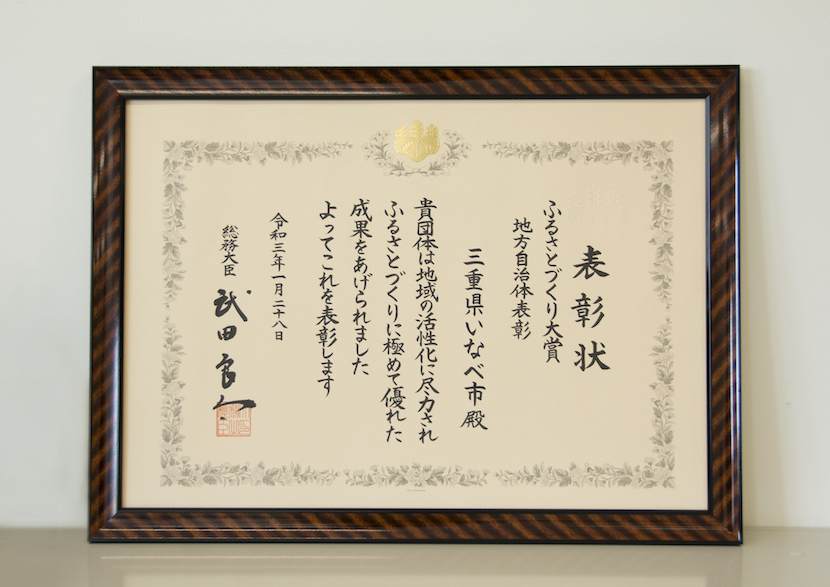 表彰状
ふるさとづくり大賞
地方自治体表彰
三重県いなべ市殿
貴団体は地域の活性化に尽力され
ふるさとづくりに極めて優れた
成果をあげられました
よってこれを表彰します
令和三年一月二十八日
総務大臣 武田良太